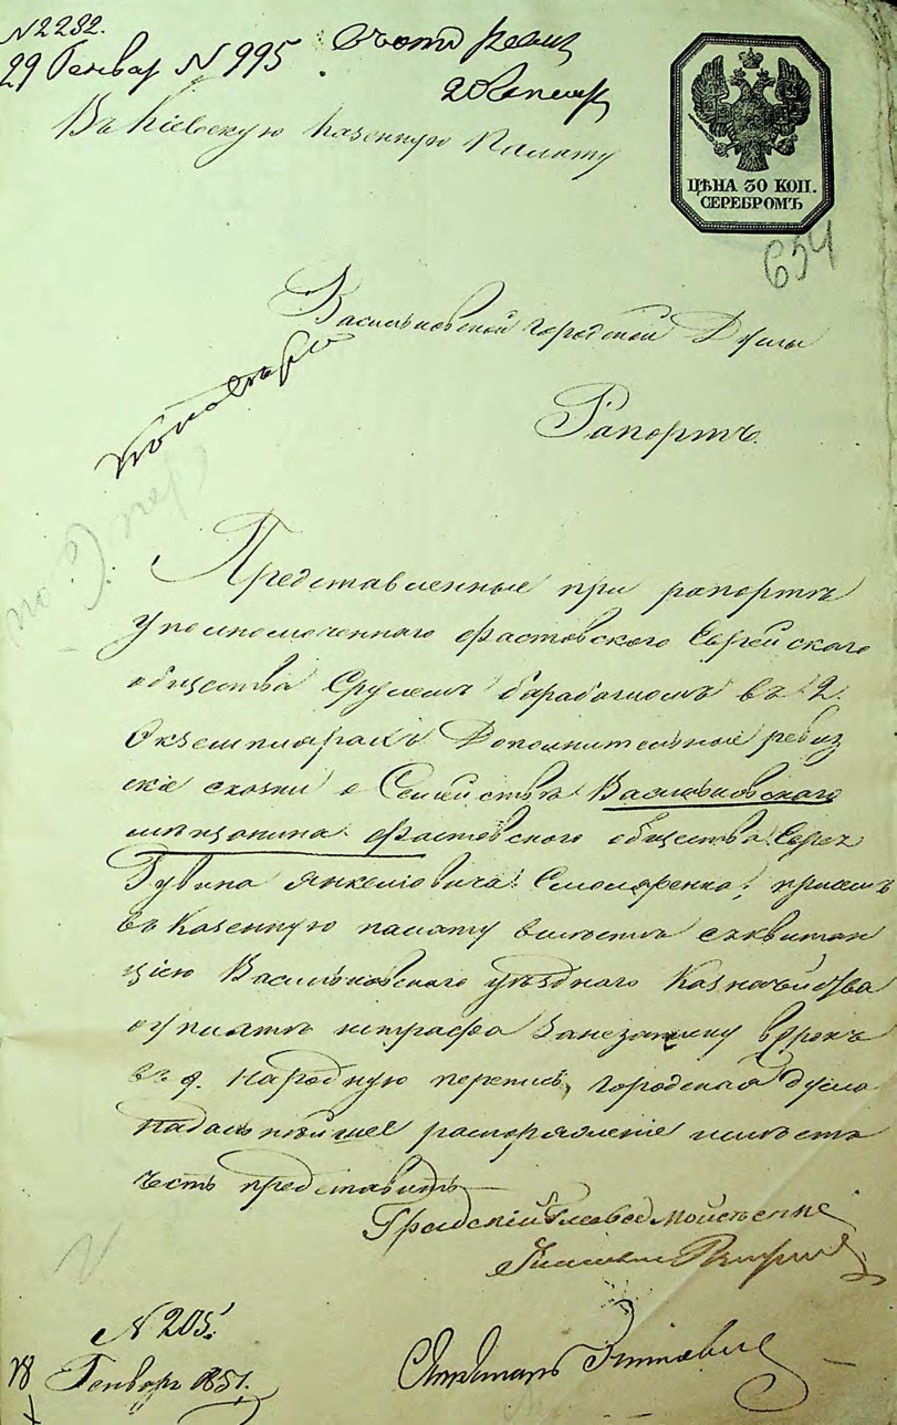 N 2232.
29 Генвар N 995
Въ отд ревиз
20 Генвар
Въ Кіевскую Казенную Палату
ЦѢНА 30 КОП.
СЕРЕБРОМЪ
654
Васильковской городской Думы
Рапортъ.
Представленные при рапортѣ
Уполномоченного Фастовского Еврейского
общества Срулемъ Барабашомъ въ 2.
Экземплярахъ Дополнительные ревиз
скіе сказки о Семействѣ Васильковского
мѣщанина Фастовского общества Еврея
Рувина Янкеліовича Смоляренка,
въ Казенную палату вместѣ съ квитан
цією Васильковского уѣздного Казначейства
о уплатѣ штрафа за незаписку въ срокъ
въ 9. Народную перепись, городская дума
на дальнѣйшее распоряженіе имѣетъ
честь представить
Градскій Глава
N 205.
18
Генваря 1851.
Секретарь